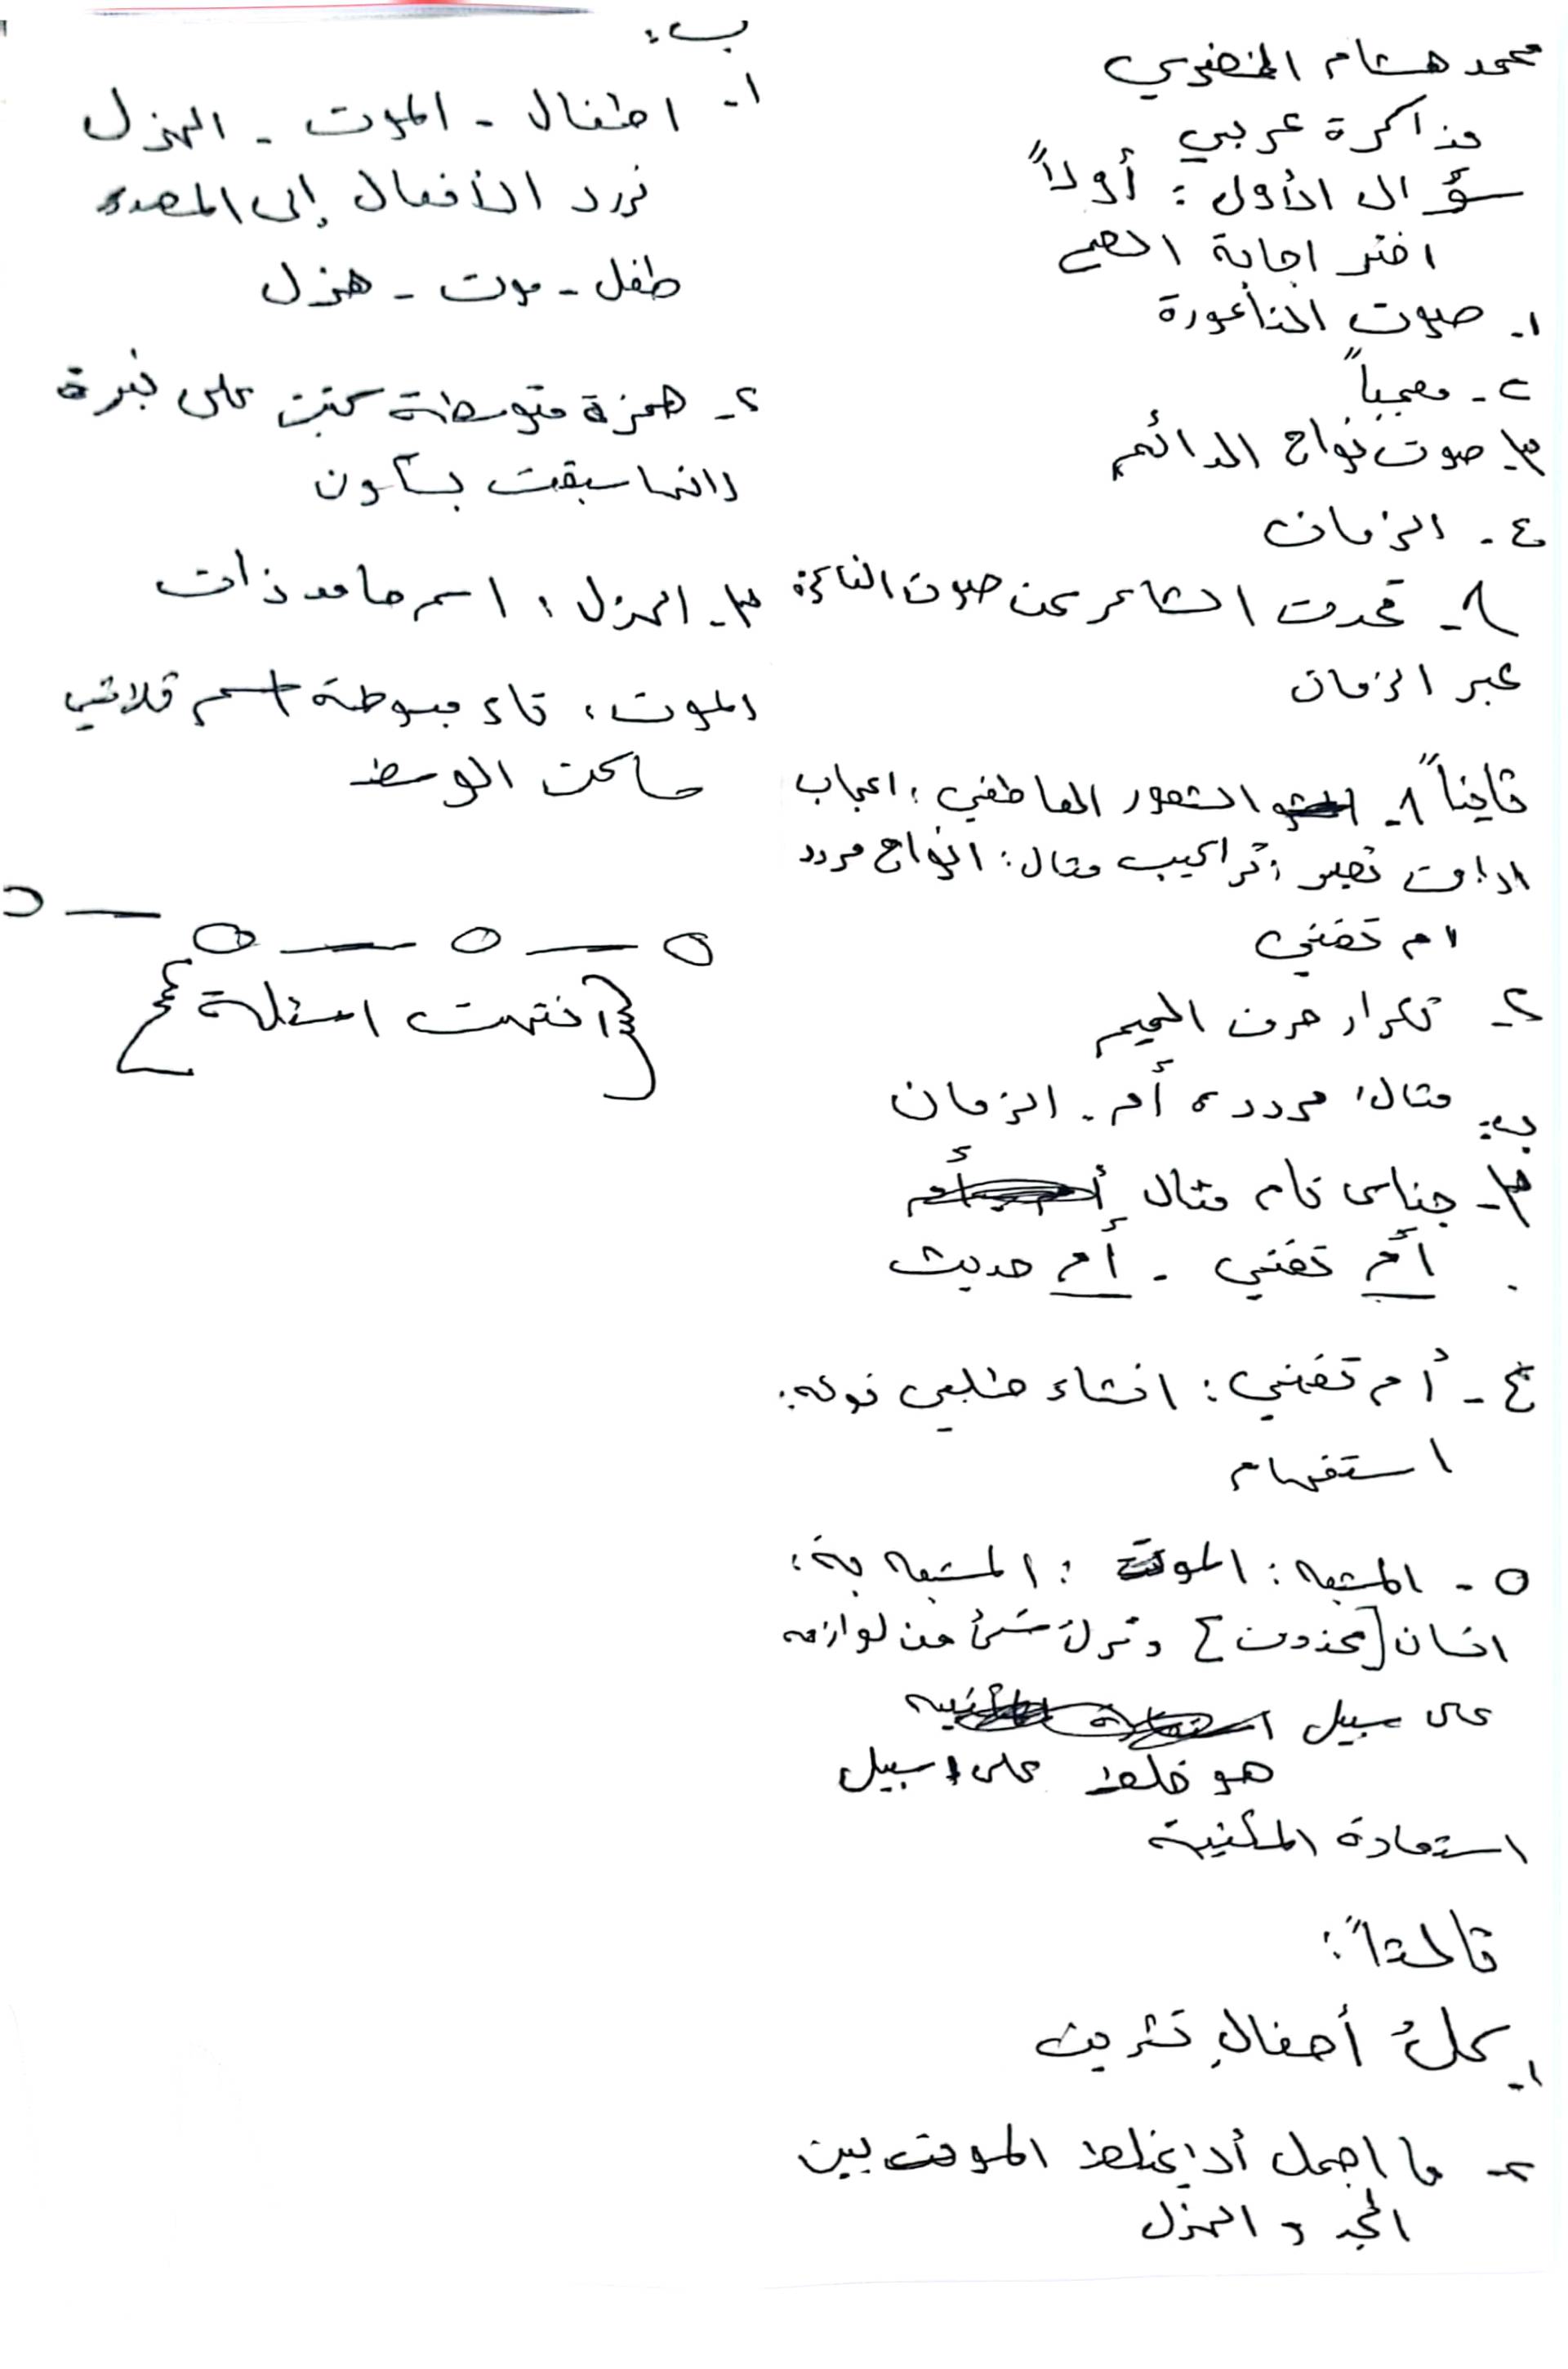 محمد هشام الخضري
مذاكرة عربي
سؤال الأول : أولاً
اختر اجابة الصح
١- صوت الناعورة
٢- معجباً
٣- صوت نواح الدائم
٤- الزمان
١- تحدث الشاعر عن صوت الناعورة
عبر الزمان
ثانياً ١- الشعور العاطفي : اعجاب
ادات تعبير : تراكيب مثال : انواح مردد
ام تغني
٢- تكرار حرف الميم
ب: مثال : مردد ، أم - الزمان
٣- جناس تام مثال
أم تغني - أم حديث
٤- أم تغني : انشاء طلبي نوعه :
استفهام
٥- المشبه : الموت : المشبه به :
انسان [محذوف] وترك شئ من لوازمه
على سبيل
هو خلط على سبيل
استعارة المكنية
ثالثاً :
١- كلُ أطفالِ تشرين
٢- ما اجمل أن يخلط الموت بين
الجد و الهزل
ب :
١- اطفال - الموت - الهزل
نرد الأفعال إلى المصدر
طفل - موت - هزل
٢- همزة متوسطة كتبت على نبرة
لانها سبقت بسكون
٣- الهزل : اسم جامد ذات
الموت : تاء مبسوطة اسم ثلاثي
ساكن الوسط
{انتهت اسئلة}